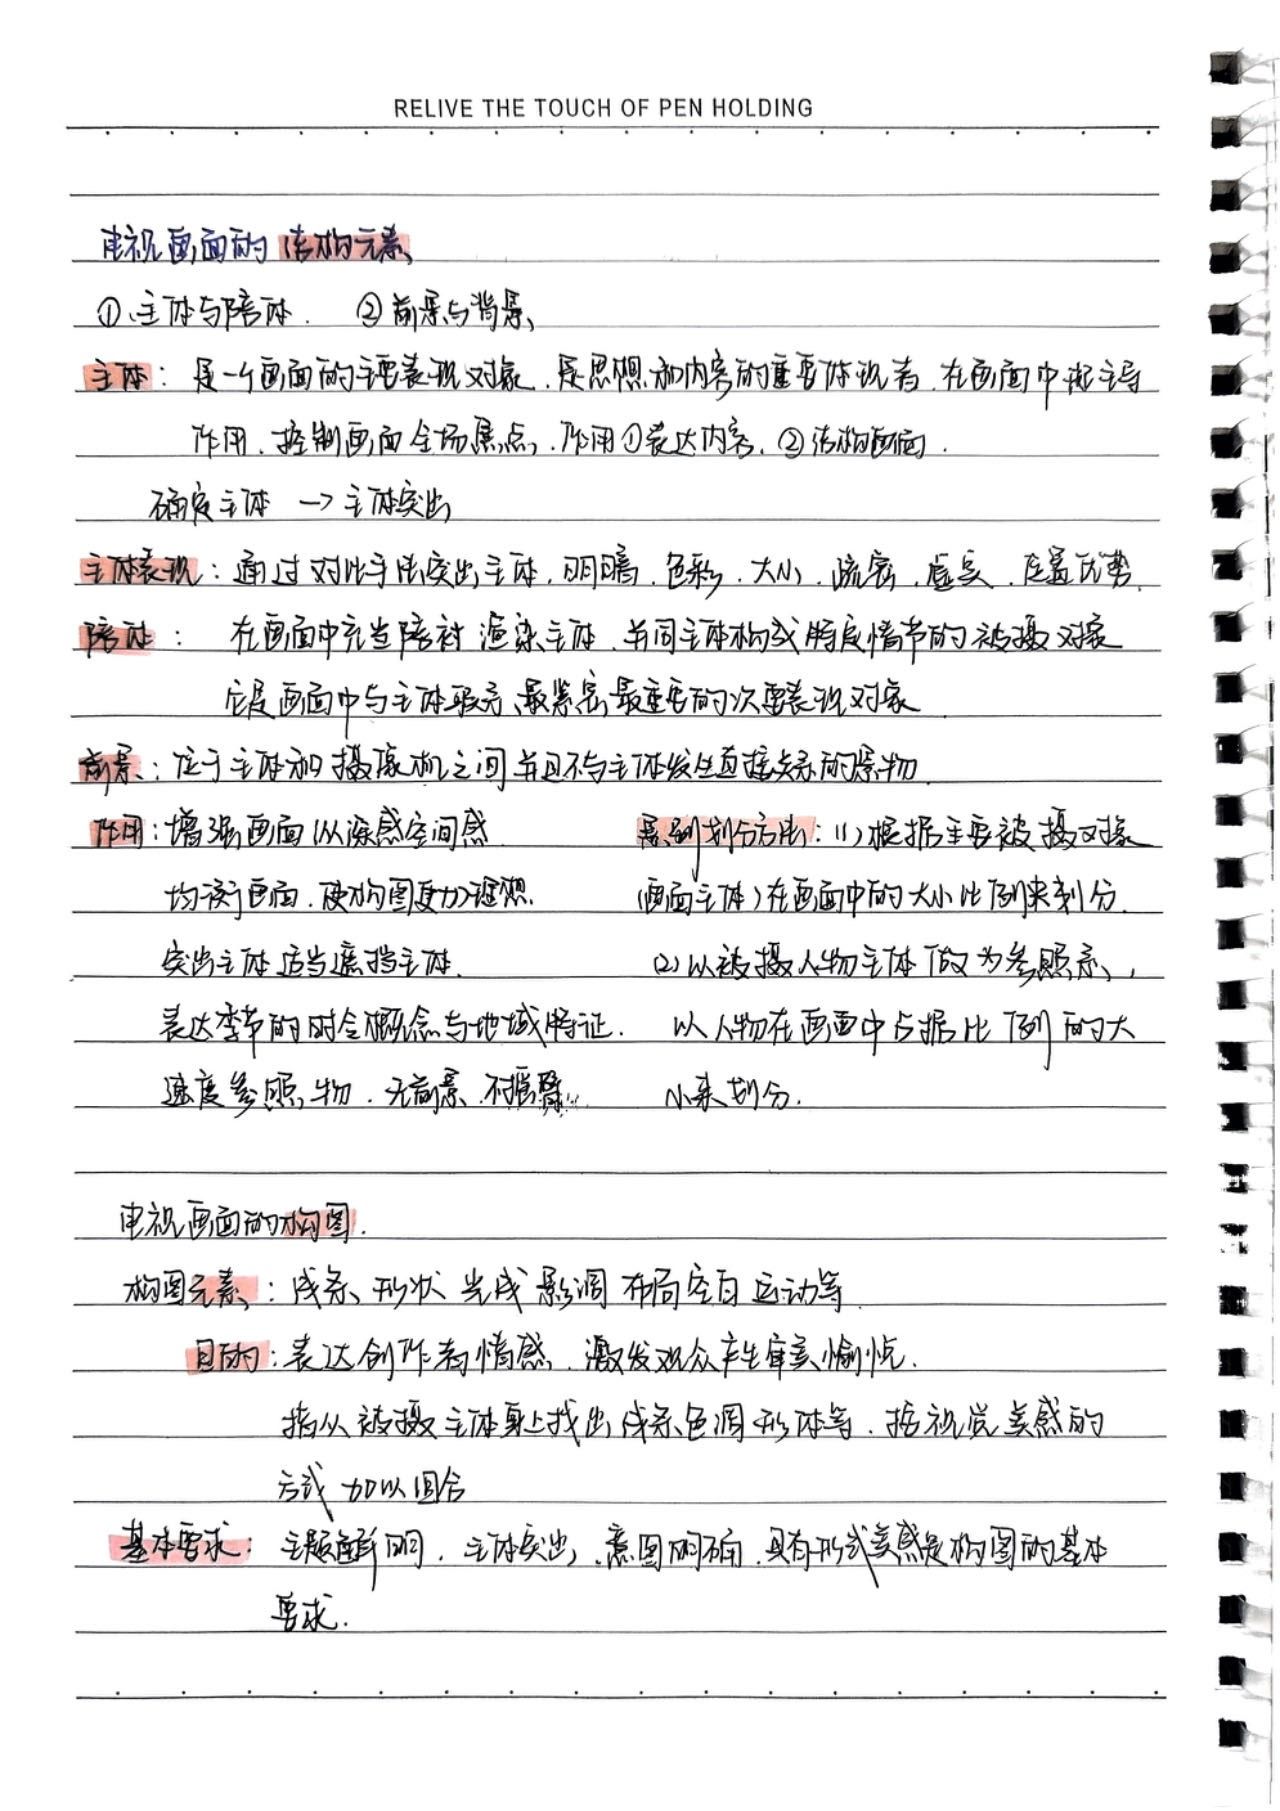 RELIVE THE TOUCH OF PEN HOLDING
电视画面的结构元素
① 主体与陪体. ② 前景与背景
主体: 是一个画面的主要表现对象、是思想和内容的重要体现者、在画面中起主导
作用、控制画面全场焦点、作用①表达内容、②结构画面.
确定主体 → 主体突出
主体表现: 通过对比手法突出主体, 明暗、色彩、大小、疏密、虚实、位置优势.
陪体: 在画面中充当陪衬 渲染主体、并同主体构成特定情节的被摄对象
它是画面中与主体联系最紧密最重要的次要表现对象
前景: 位于主体和摄像机之间并且不与主体发生直接关系的景物
作用: 增强画面纵深感空间感
均衡画面、使构图更加理想.
突出主体 适当遮挡主体.
表达季节的时令概念与地域特征.
速度参照物. 无前景 不摇臂
景别划分方法: (1) 根据主要被摄对象
(画面主体) 在画面中的大小比例来划分.
(2) 以被摄人物主体做为参照系,
以人物在画面中占据比例的大
小来划分.
电视画面的构图.
构图元素: 线条、形状 光线 影调 布局 空白 运动等
目的: 表达创作者情感、激发观众产生审美愉悦.
指从被摄主体身上找出线条色调形体等、按视觉美感的
方式 加以组合
基本要求: 主题鲜明、主体突出、意图明确、具有形式美感是构图的基本
要求.